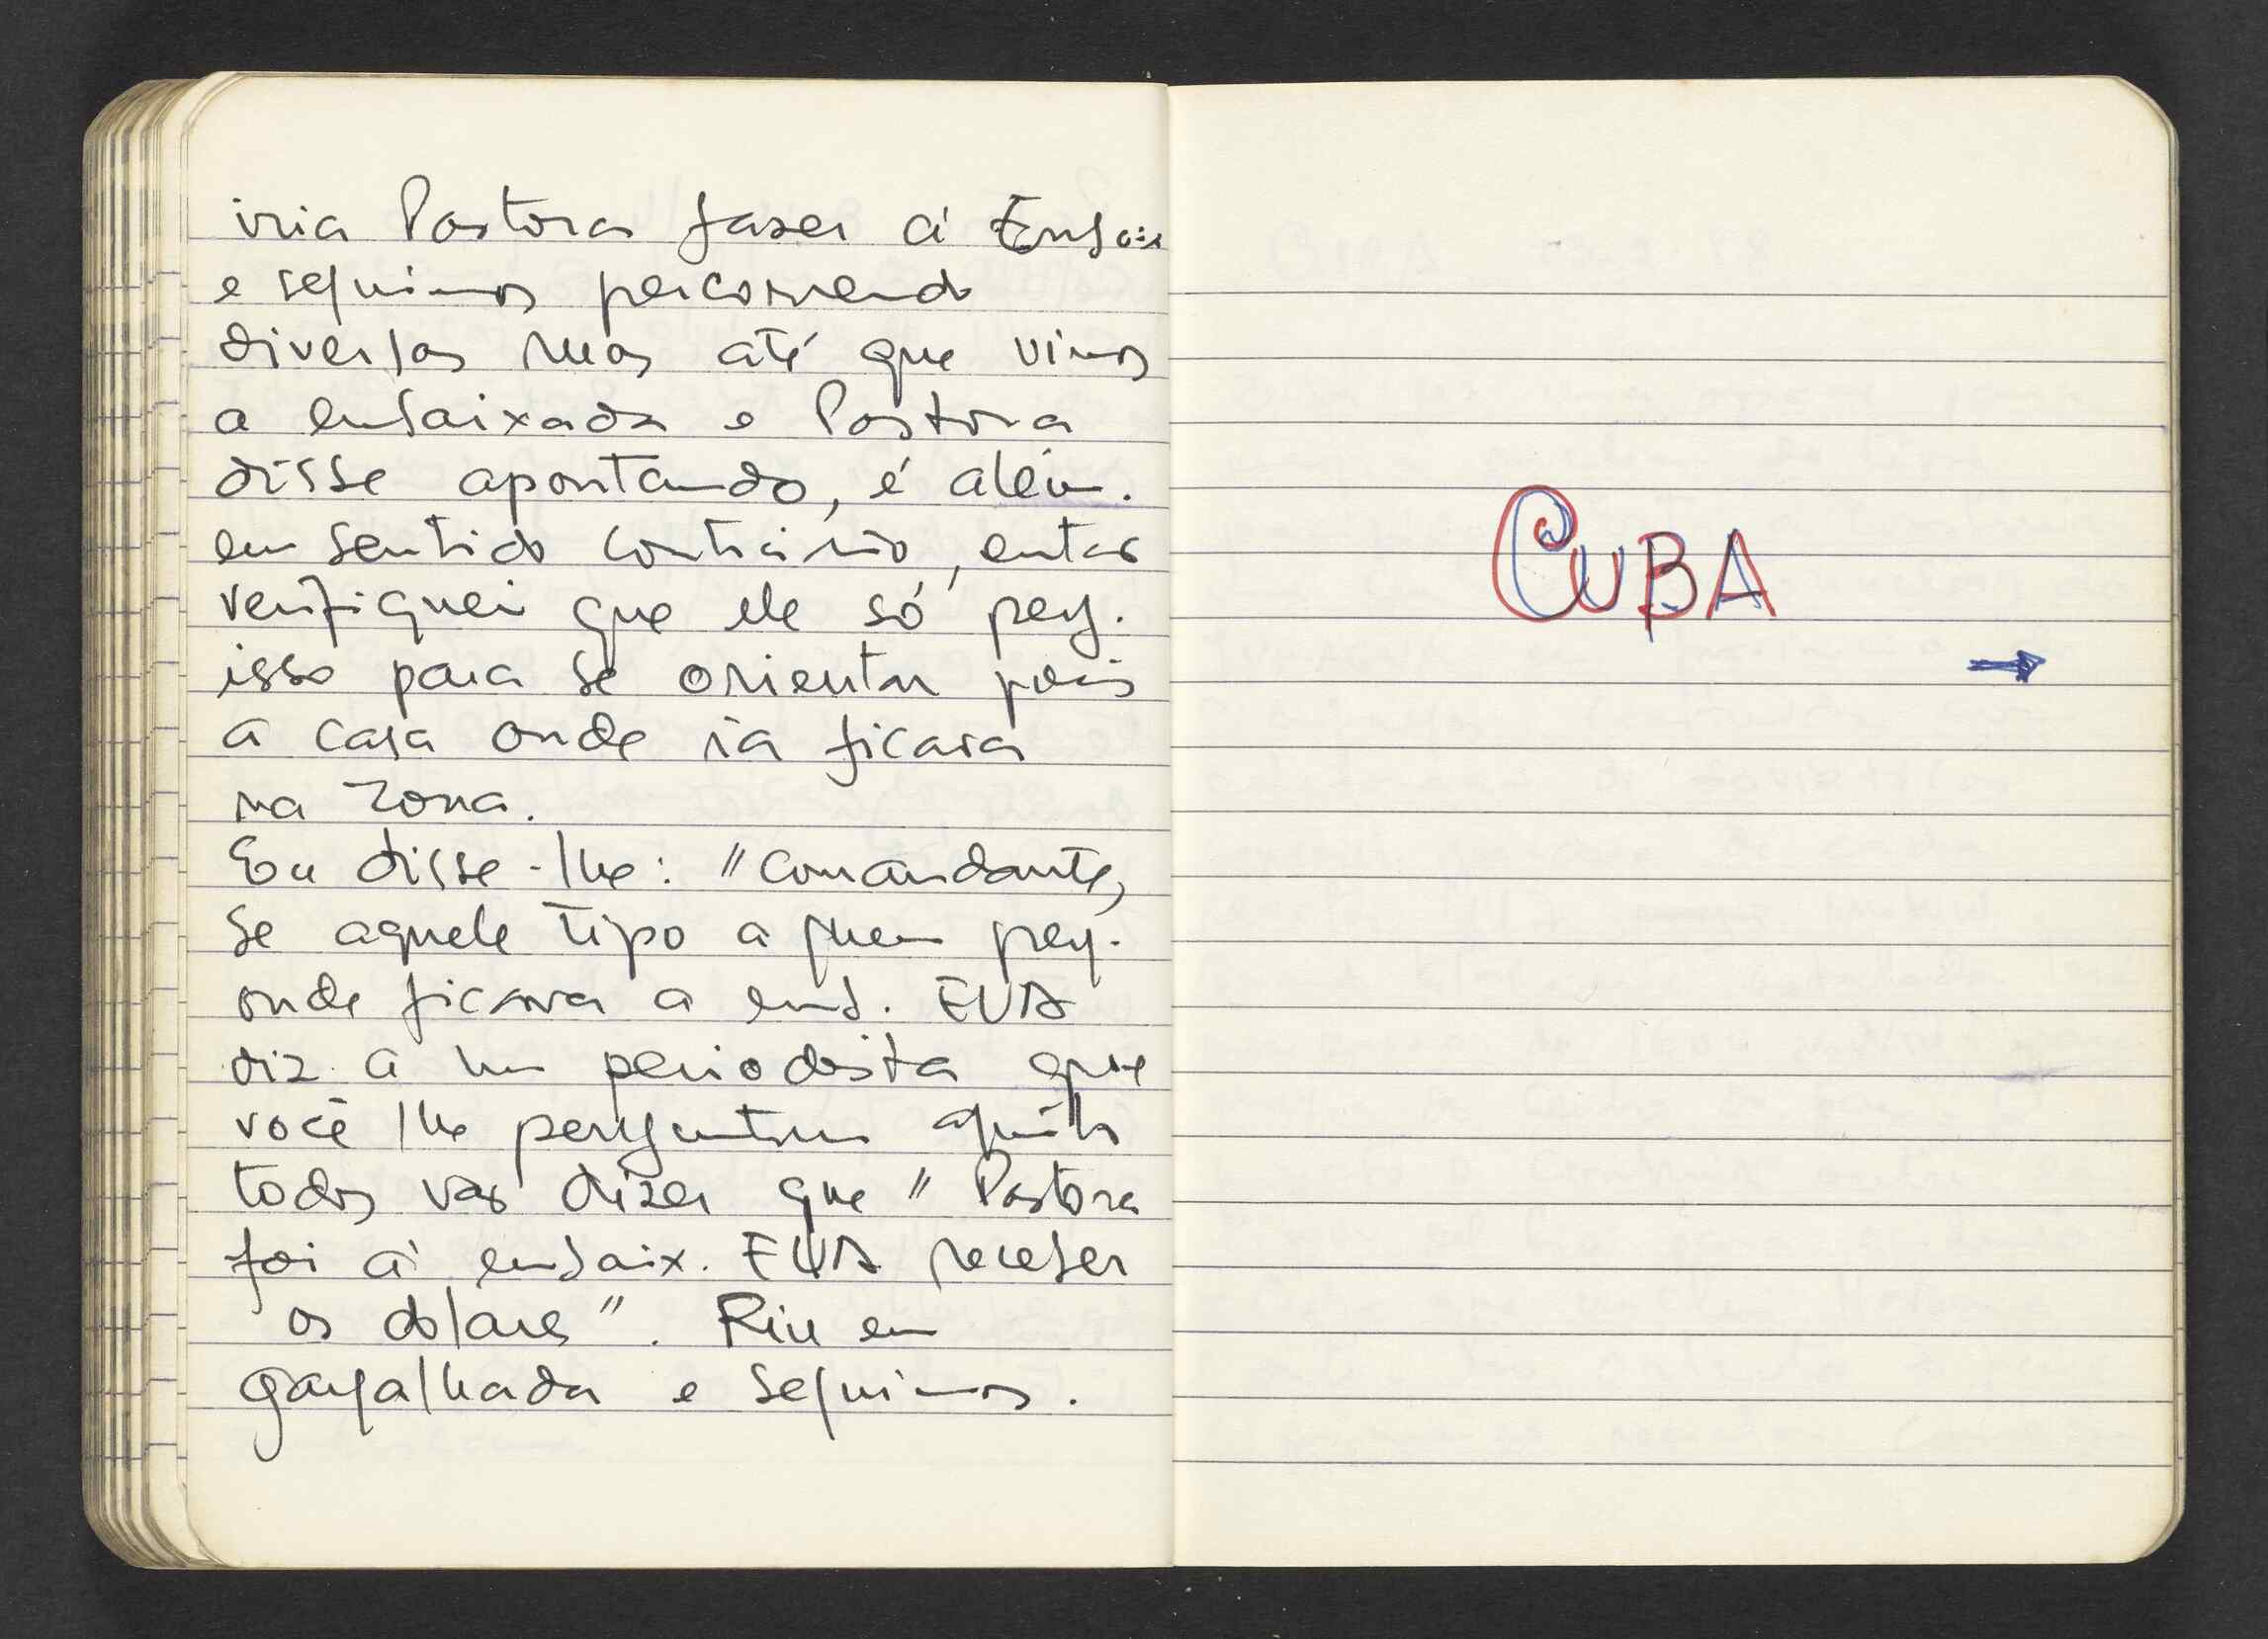 iria Pastora fazer à Embaix
e seguimos percorrendo
diversas ruas até que vimos
a embaixada e Pastora
disse apontando, é além.
em sentido contrário, então
verifiquei que ele só perg.
isso para se orientar pois
a casa onde ia ficava
na zona.
Eu disse-lhe: "Comandante,
se aquele tipo a quem perg.
onde ficava a emb. EUA
diz a um periodista que
você lhe perguntou aquilo
todos vão dizer que "Pastora
foi à embaix. EUA receber
os dolares". Riu em
gargalhada e seguimos.
CUBA
→